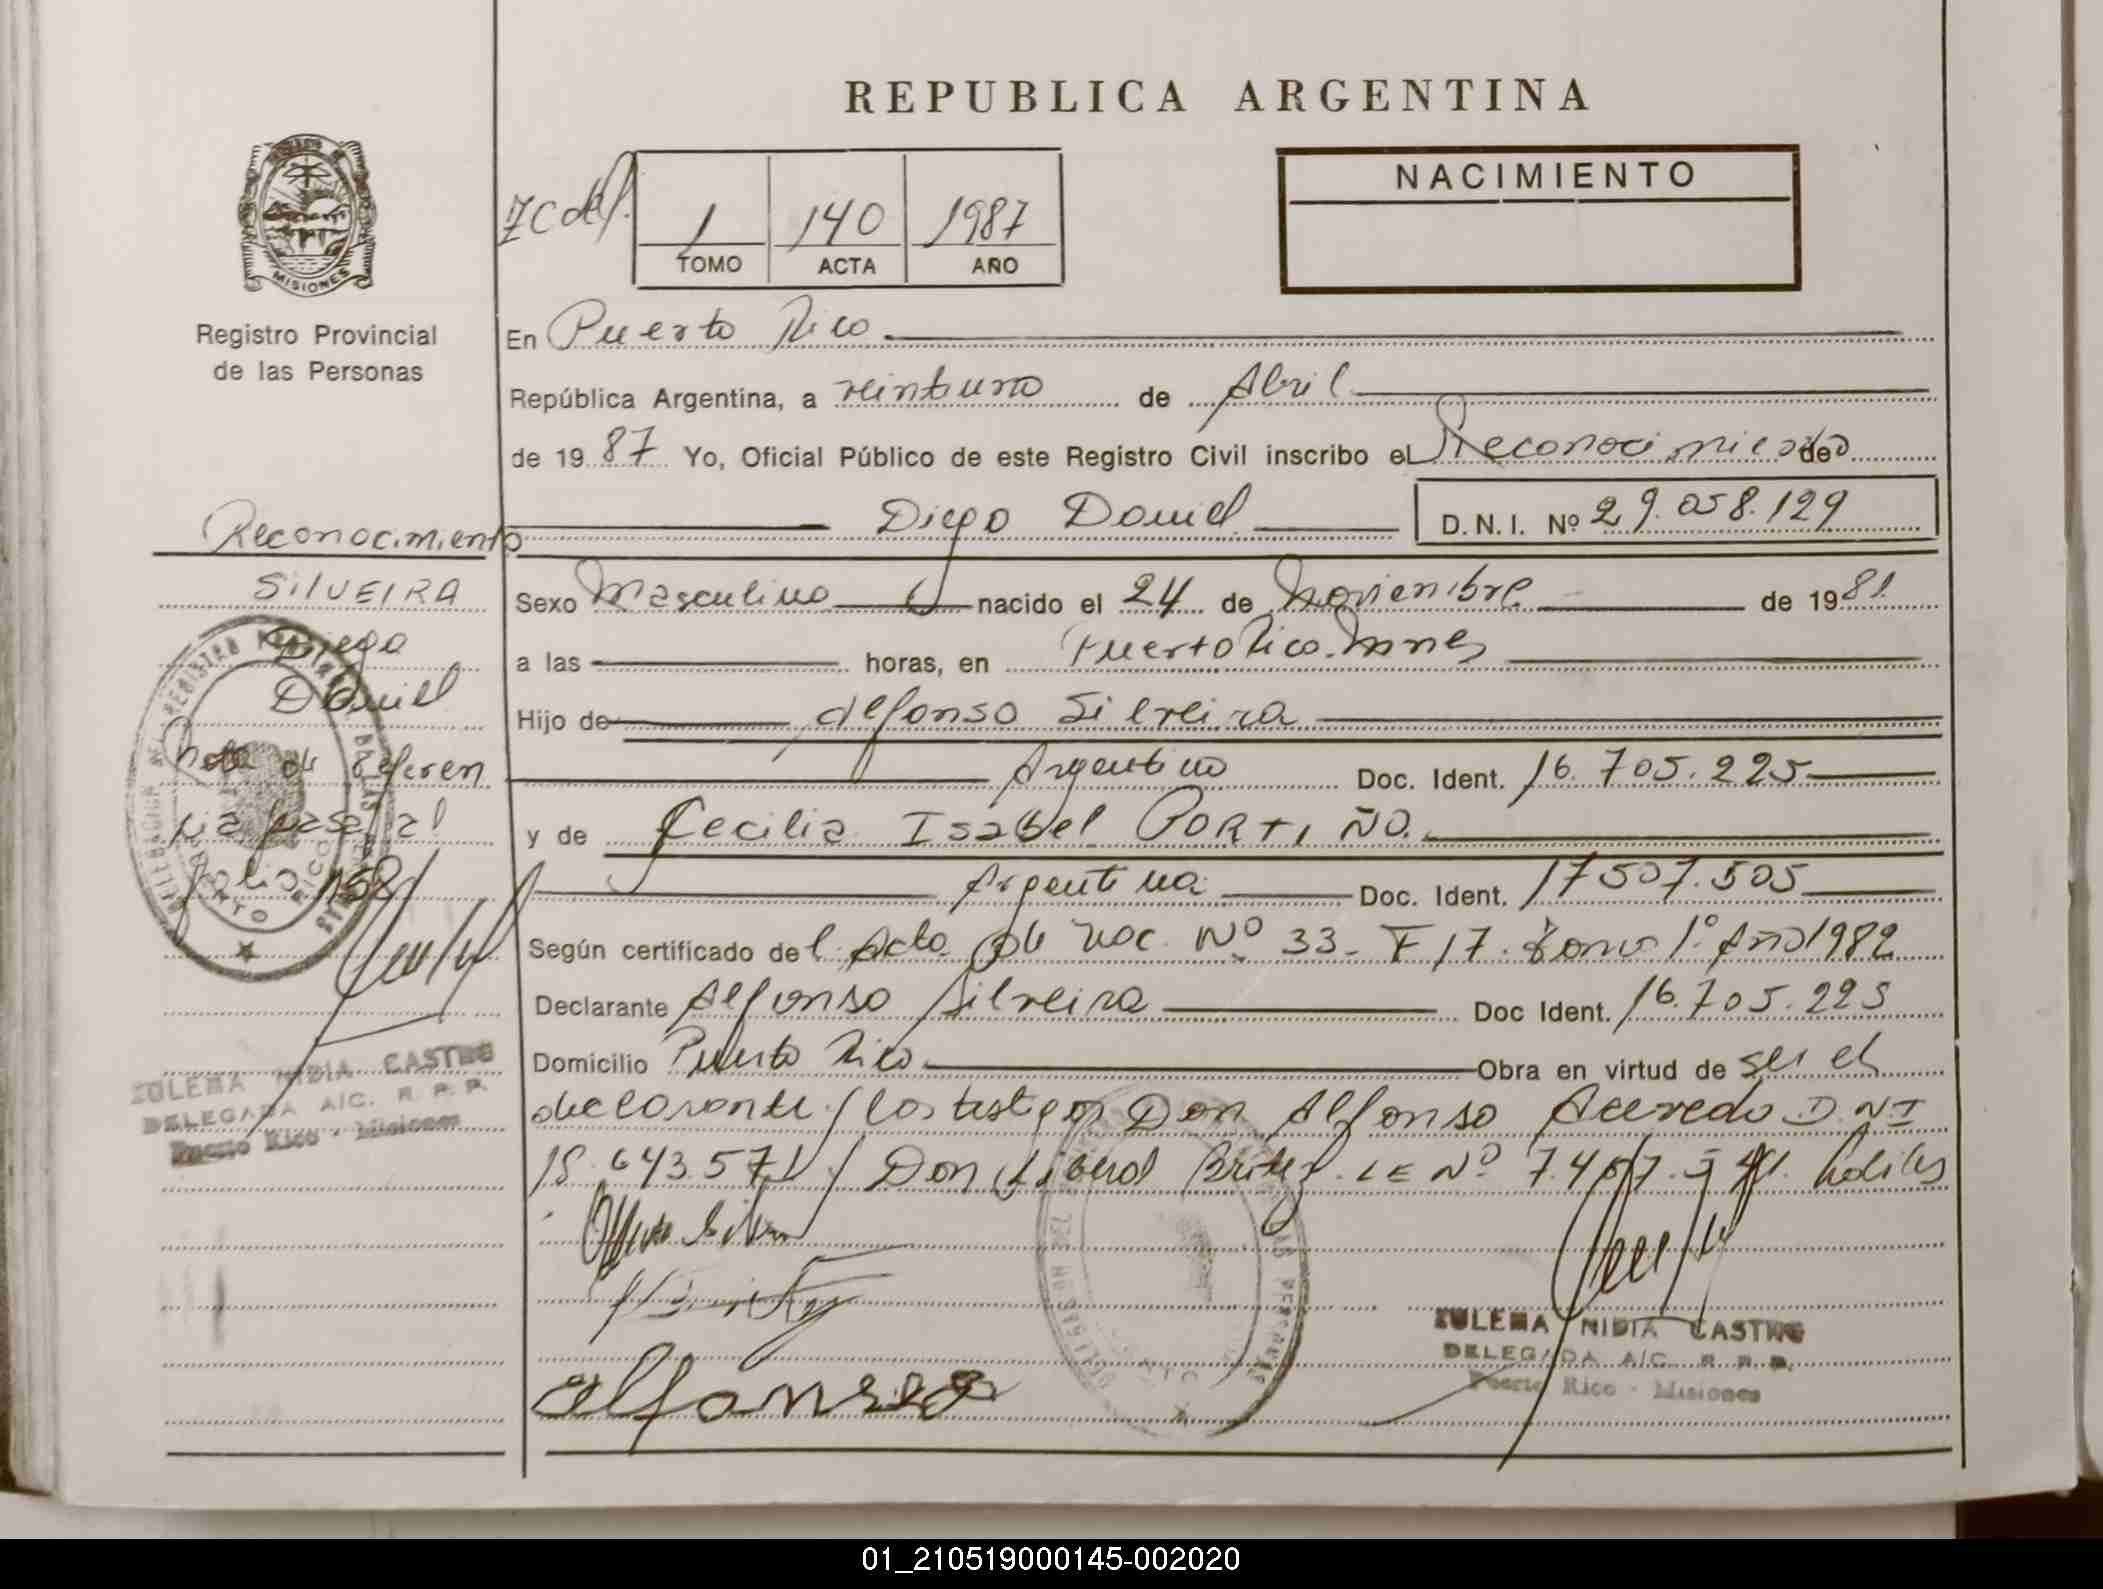 REPUBLICA ARGENTINA
NACIMIENTO
1 140 1987
TOMO ACTA AÑO
MISIONES
Registro Provincial
de las Personas
En Puerto Rico
República Argentina, a veintiuno de Abril
de 1987 Yo, Oficial Público de este Registro Civil inscribo el Reconocimiento de
Diego Daniel D.N.I. Nº 29.058.129
Reconocimiento
SILVEIRA
Diego
Daniel
nota de Referen
cia pasa al
folio 158
Sexo Masculino nacido el 24 de Noviembre de 1981
a las horas, en Puerto Rico. Mnes
Hijo de Alfonso Silveira
Argentino Doc. Ident. 16.705.225
y de Cecilia Isabel PORTIÑO.
Argentina Doc. Ident. 17507.505
Según certificado del Acta de Nac. Nº 33- F 17. Tomo 1º Año 1982
Declarante Alfonso Silveira Doc Ident. 16.705.225
Domicilio Puerto Rico Obra en virtud de ser el
declarante / los testigos Don Alfonso Acevedo D.N.I
18.643.571 / Don Liberal Britez. LE Nº 7.457. hábiles
ZULEMA NIDIA CASTRO
DELEGADA A/C. R. P. P.
Puerto Rico - Misiones
alfonso
ZULEMA NIDIA CASTRO
DELEGADA A/C. R. P. P.
Puerto Rico - Misiones
01_210519000145-002020